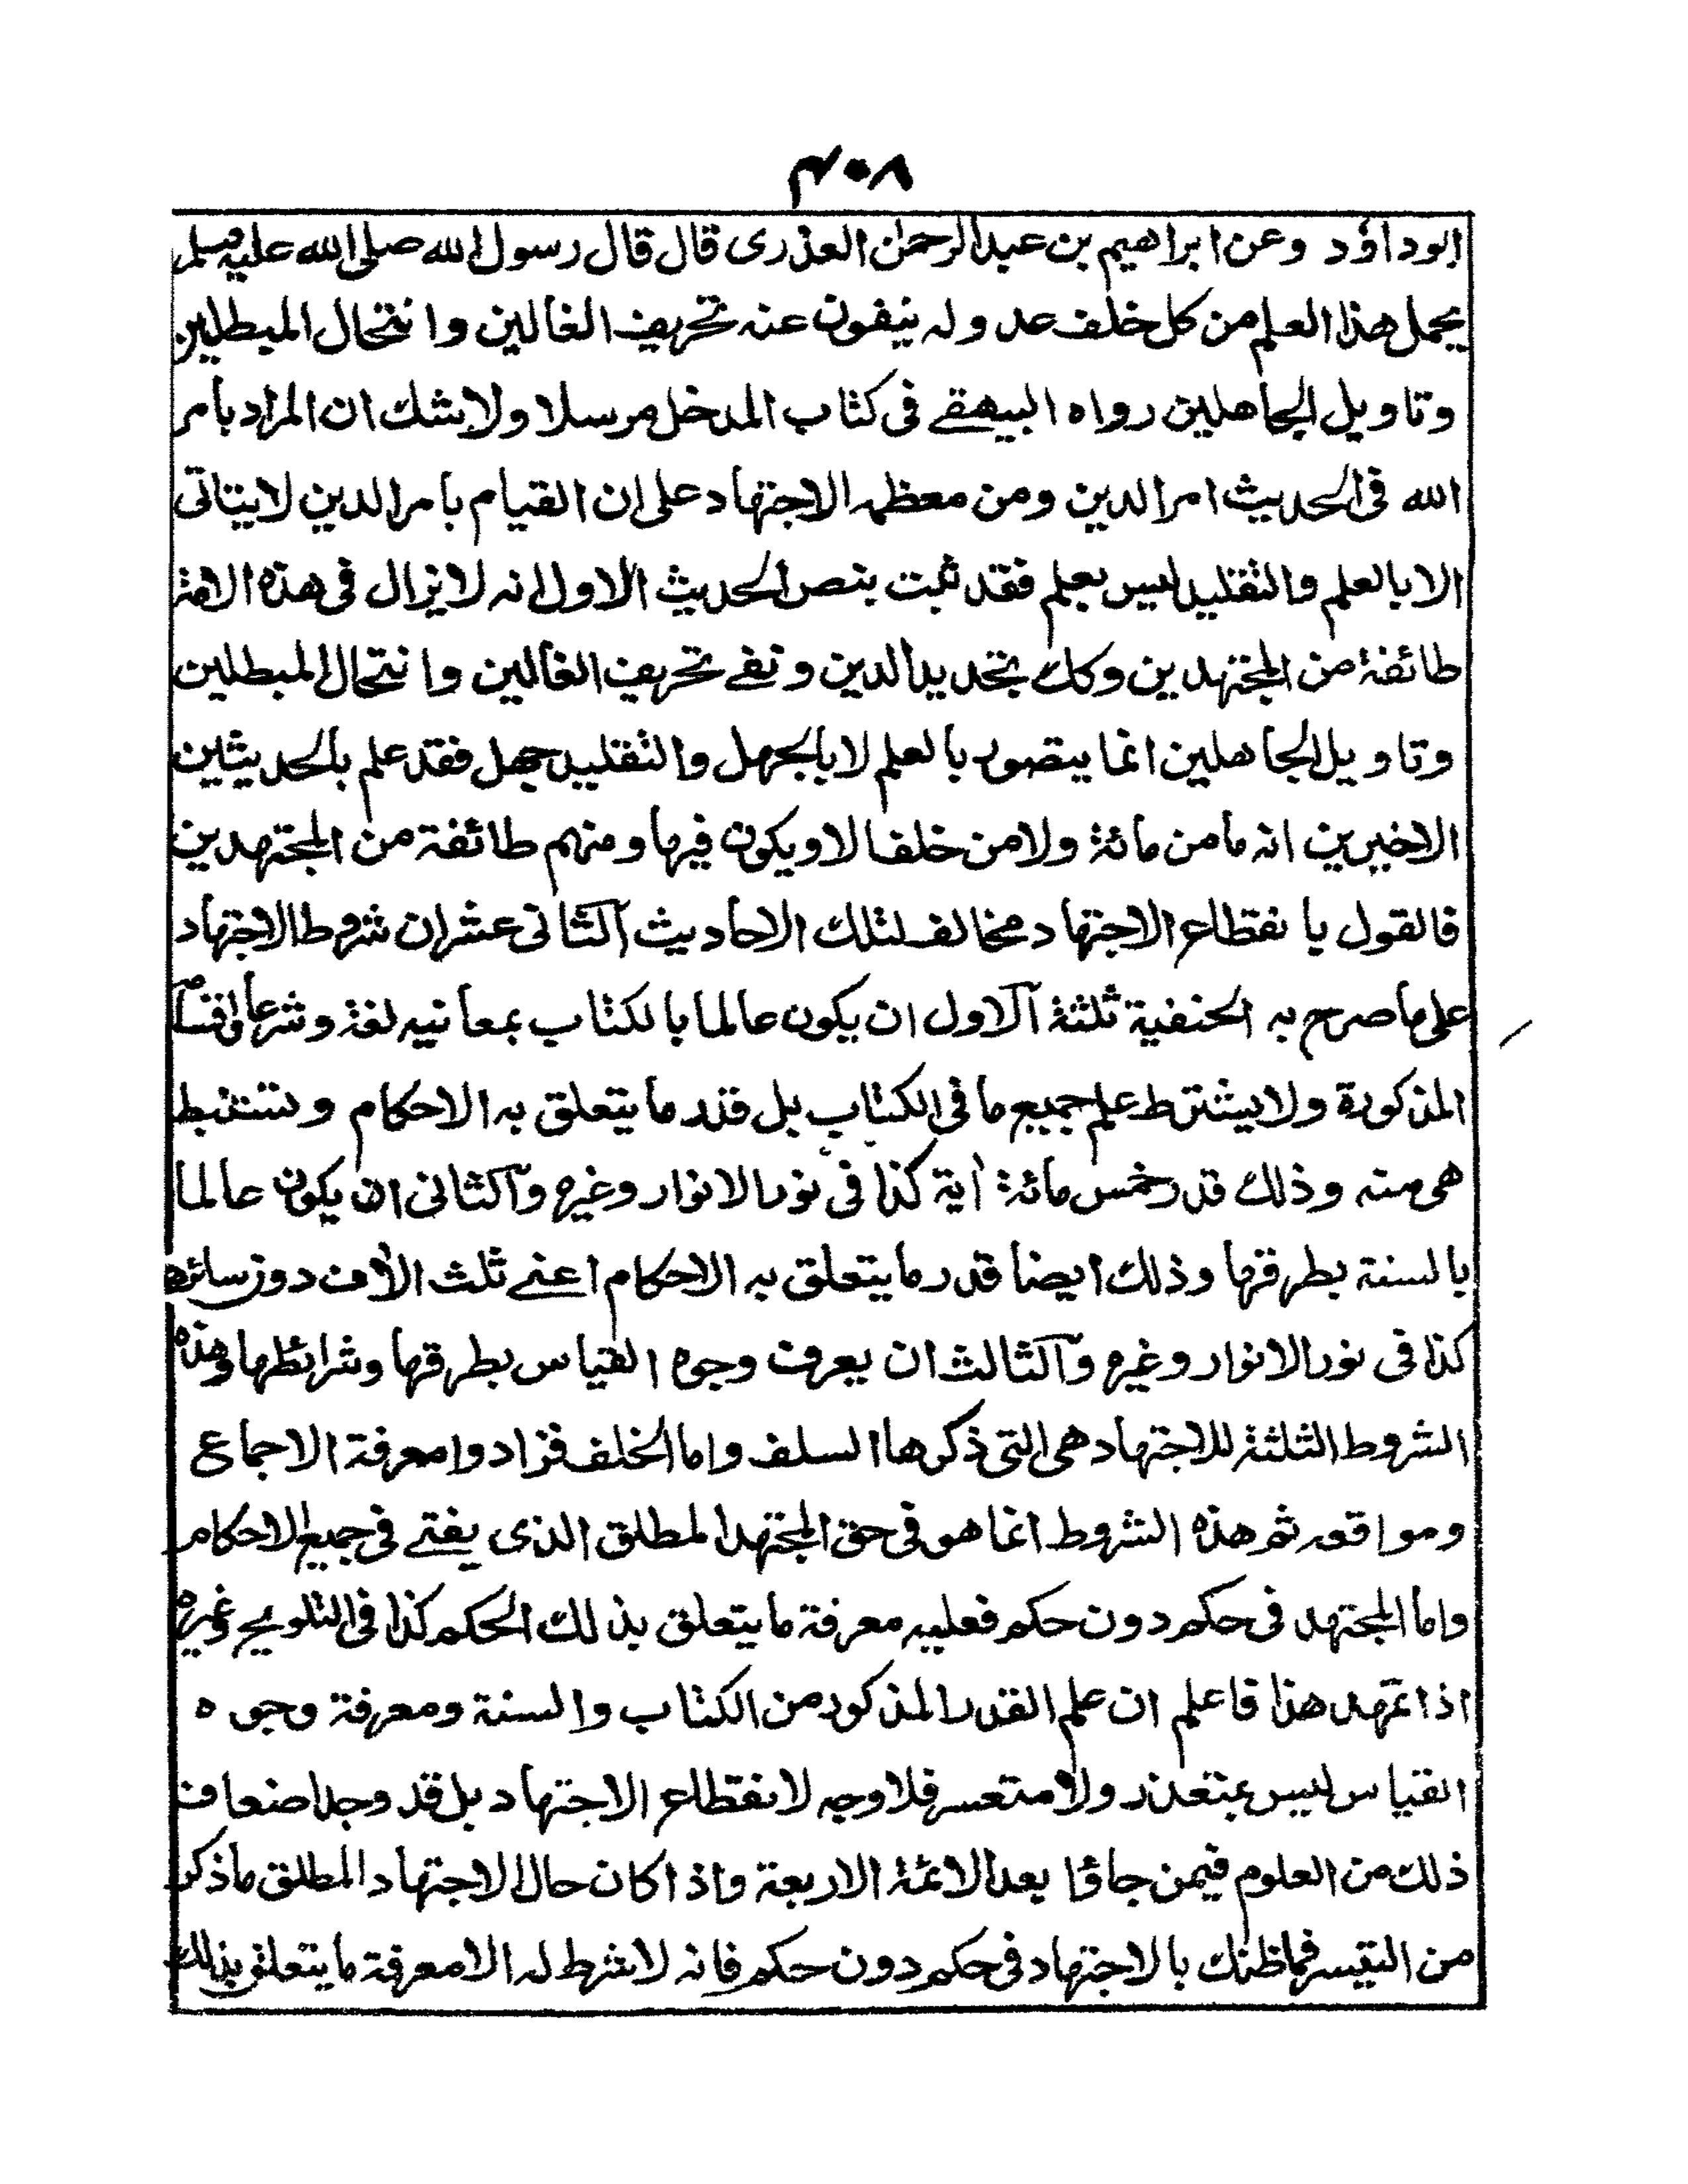 ۴۰۸
ابوداؤد وعن ابراهيم بن عبدالرحمن العذری قال قال رسول الله صلی الله عليه وسلم
يحمل هذا العلم من كل خلف عدوله ينفون عنه تحريف الغالين وانتحال المبطلين
وتاويل الجاهلين رواه البيهقے فی كتاب المدخل مرسلا ولاشك ان المراد بأمر
الله فی الحديث امرالدين ومن معظمه الاجتهاد علی ان القيام بأمرالدين لايتاتی
الابالعلم والتقليد ليس بعلم فقد ثبت بنص الحديث الاول انه لايزال فی هذه الامة
طائفة من المجتهدين وكك بتجديدالدين ونفے تحريف الغالين وانتحال المبطلين
وتاويل الجاهلين انما يتصور بالعلم لابالجهل والتقليد جهل فقد علم بالحديثين
الاخيرين انه مامن مائة ولامن خلف الاويكون فيها ومنهم طائفة من المجتهدين
فالقول بانقطاع الاجتهاد مخالف لتلك الاحاديث الثانی عشران شروط الاجتهاد
علی ماصرح به الحنفية ثلثة الاول ان يكون عالما بالكتاب بمعانيه لغة وشرعا واقسامه
المذكورة ولايشترط علم جميع مافی الكتاب بل قدر مايتعلق به الاحكام وتستنبط
هی منه وذلك قدر خمس مائة اية كذا فی نورالانوار وغيره والثانی ان يكون عالما
بالسنة بطرقها وذلك ايضا قدر مايتعلق به الاحكام اعنے ثلث الاف دون سائرها
كذا فی نورالانوار وغيره والثالث ان يعرف وجوه القياس بطرقها وشرائطها وهذه
الشروط الثلثة للاجتهاد هی التی ذكرها السلف واما الخلف فزادوا معرفة الاجماع
ومواقعه ثم هذه الشروط انما هو فی حق المجتهد المطلق الذی يفتے فی جميع الاحكام
واما المجتهد فی حكم دون حكم فعليه معرفة مايتعلق بذلك الحكم كذا فی التلويح وغيره
اذا تمهد هذا فاعلم ان علم القدر المذكور من الكتاب والسنة ومعرفة وجوه
القياس ليس بمتعذر ولامتعسر فلاوجه لانقطاع الاجتهاد بل قد وجد اضعاف
ذلك من العلوم فيمن جاؤا بعدالائمة الاربعة واذا كان حال الاجتهاد المطلق ماذكر
من اليسر فماظنك بالاجتهاد فی حكم دون حكم فانه لاشرط له الامعرفة مايتعلق بذلك